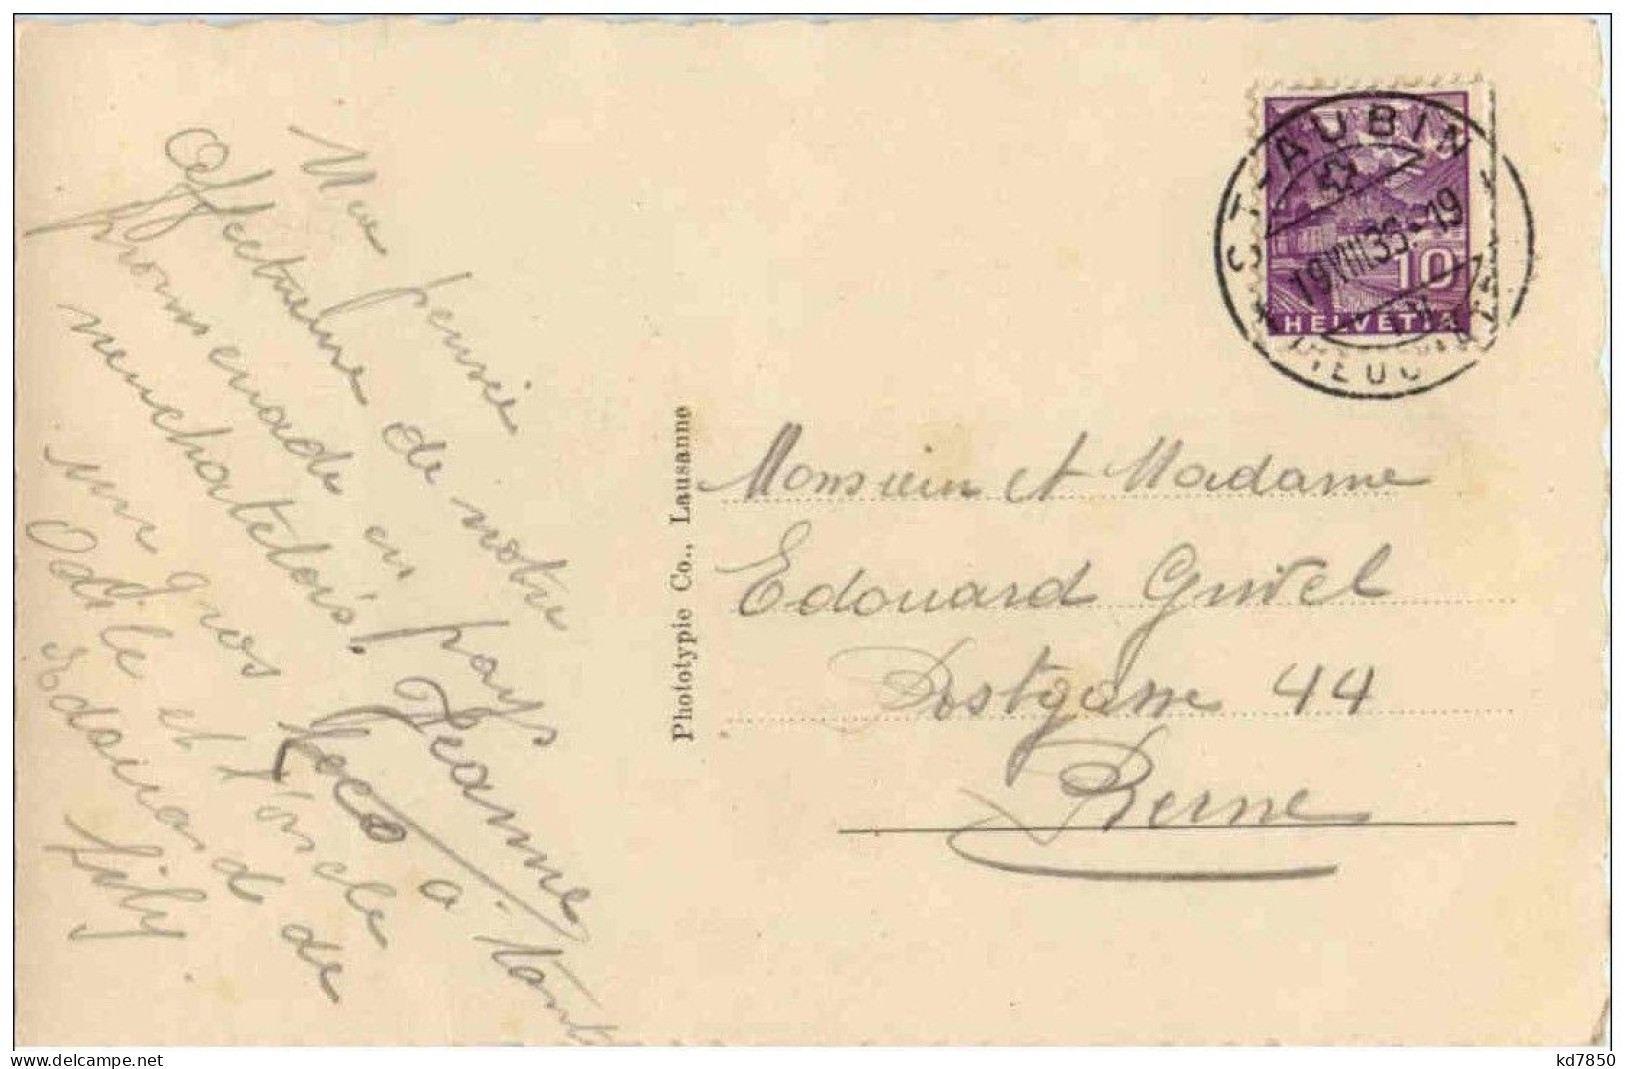 Une pensée
Affectueuse de notre
promenade en pays
neuchatelois!
Jeanne
une gros bec à tante
Odile et l'oncle
Edouard de
Lily
Phototypie Co., Lausanne
ST-AUBIN
19.VIII.36.-19
NEUCHÂTEL
10
HELVETIA
Monsieur et Madame
Edouard Givel
Postgasse 44
Berne
www.delcampe.net
kd7850